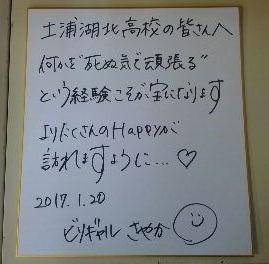 土浦湖北高校の皆さんへ
何かを"死ぬ気で頑張る"
という経験こそが宝になります
よりたくさんのHappyが
訪れますように…♡
2017.1.20
ビリギャル さやか